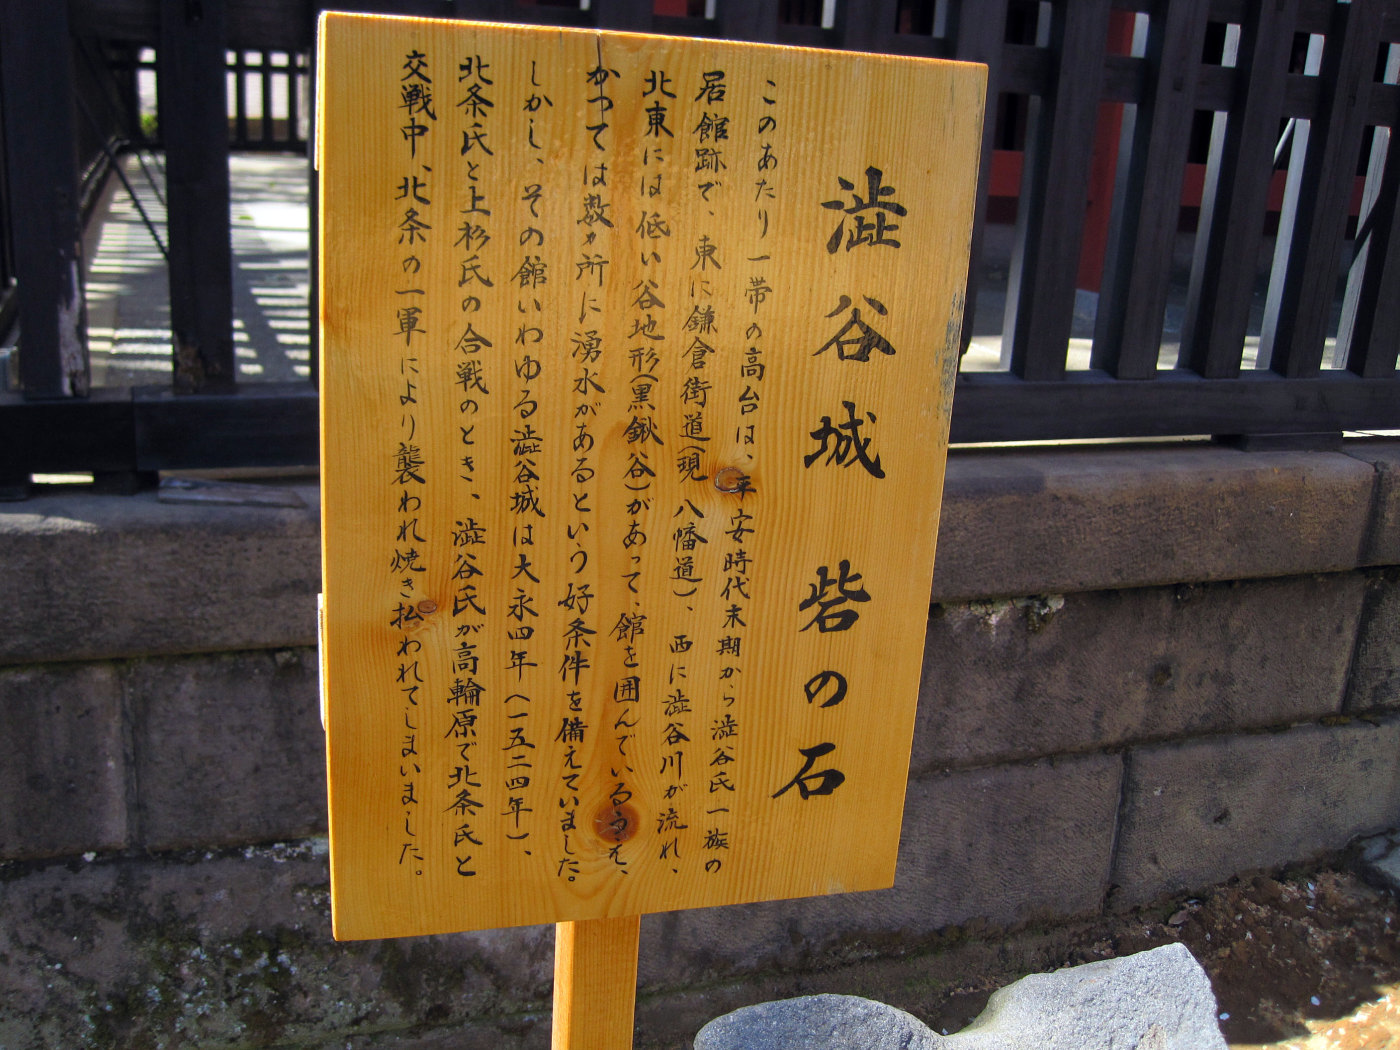 澁谷城 砦の石
このあたり一帯の高台は、平安時代末期から澁谷氏一族の
居館跡で、東に鎌倉街道(現 八幡道)、西に澁谷川が流れ、
北東には低い谷地形(黒鍬谷)があって、館を囲んでいるうえ、
かつては数ヵ所に湧水があるという好条件を備えていました。
しかし、その館いわゆる澁谷城は大永四年(一五二四年)、
北条氏と上杉氏の合戦のとき、澁谷氏が高輪原で北条氏と
交戦中、北条の一軍により襲われ焼き払われてしまいました。